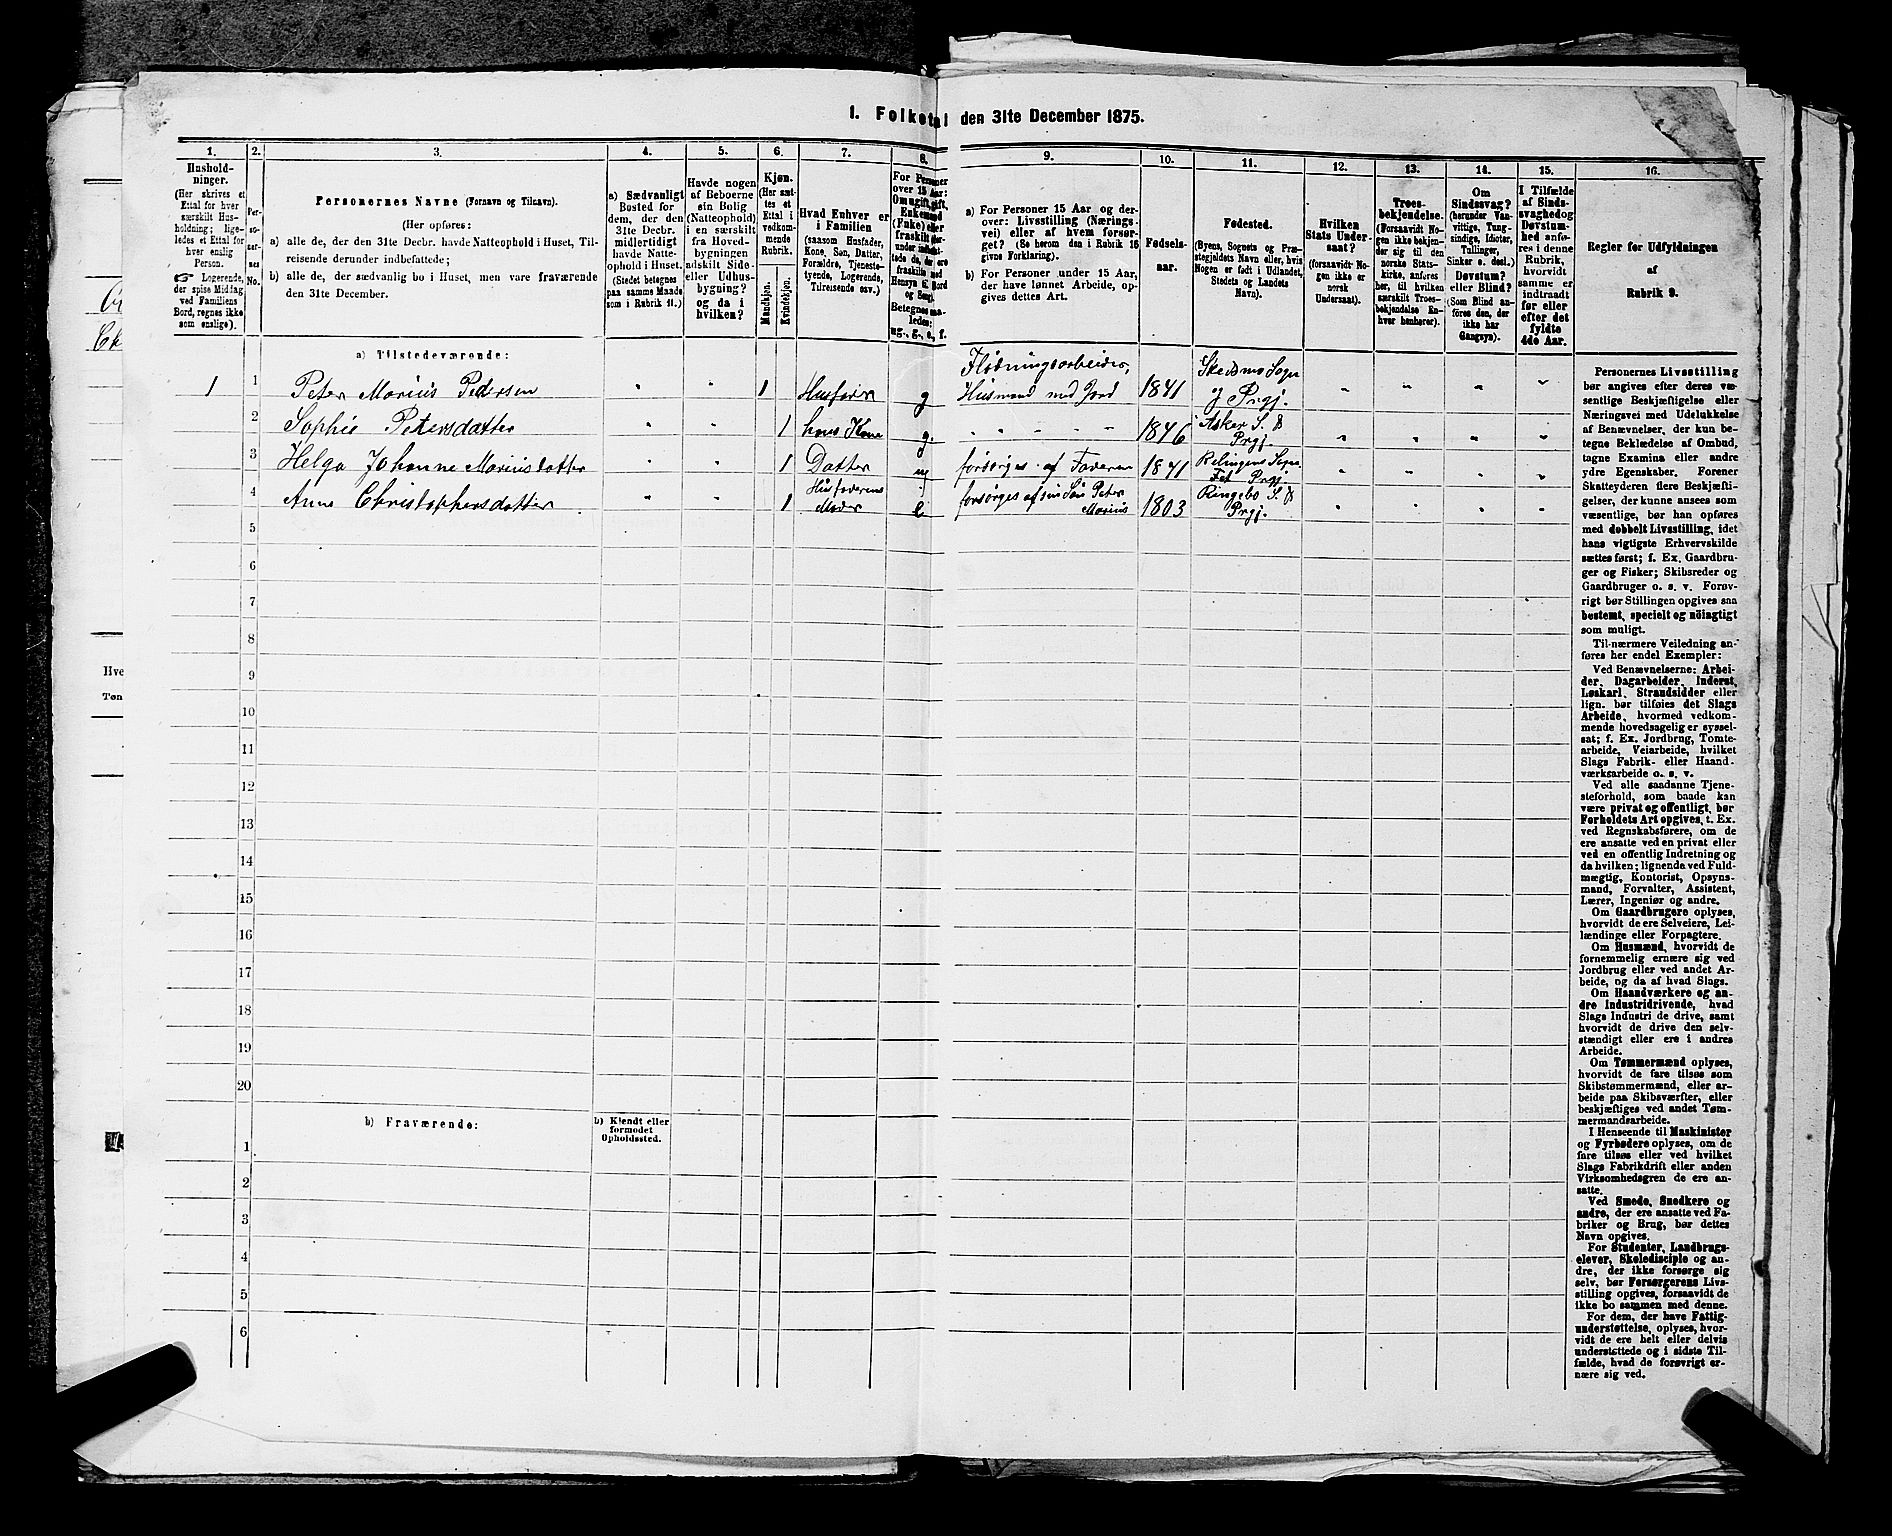 1. Folketal den 31te December 1875.
1.
2.
3.
4.
5.
6.
7.
8.
9.
10.
11.
12.
13.
14.
15.
16.
Hushold-
ninger.
(Her skrives et
Ettal for hver
særskilt Hus-
holdning; lige-
ledes et Ettal for
hver enslig
Person.
☞ Logerende,
der spise Middag
ved Familiens
Bord, regnes ikke
som enslige).
Per-
so-
ner-
nes
No.
Personernes Navne (Fornavn og Tilnavn).
(Her opføres:
a) alle de, der den 31te Decbr. havde Natteophold i Huset, Til-
reisende derunder indbefattede;
b) alle de, der sædvanlig bo i Huset, men vare fraværende
den 31te December.
a) Sædvanligt
Bosted for
dem, der den
31te Decbr.
midlertidigt
havde Natte-
ophold i Huset.
(Stedet betegnes
paa samme Maade
som i Rubrik 11.)
Havde nogen
af Beboerne
sin Bolig
(Natteophold)
i en særskilt
fra Hoved-
bygningen
adskilt Side-
eller Udhus-
bygning?
og da i
hvilken?
Kjøn.
(Her sæt-
tes et
Ettal i
vedkom-
mende
Rubrik.
Mandkjøn.
Kvindekjøn.
Hvad Enhver er
i Familien
(saasom Husfader,
Kone, Søn, Datter,
Forældre, Tjeneste-
tyende, Logerende,
Tilreisende osv.)
For Personer
over 15 Aar:
Om ugift, gift,
Enkemand
(Enke) eller
fraskilt
Betegnes saa-
ledes:
ug., g., e., f.
a) For Personer 15 Aar og der-
over: Livsstilling (Nærings-
vei) eller af hvem forsør-
get? (Se herom den i Rubrik 16
givne Forklaring).
b) For Personer under 15 Aar,
der have lønnet Arbeide, op-
gives dettes Art.
Fødsels-
aar.
Fødested.
(Byens, Sognets og Præ-
stegjeldets Navn eller, hvis
Nogen er født i Udlandet,
Stedets og Landets
Navn).
Hvilken
Stats Under-
saat?
(forsaavidt No-
gen ikke er
norsk
Undersaat).
Troes-
bekjendelse.
(Forsaavidt No-
gen ikke bekjen-
der sig til den
norske Stats-
kirke, anføres
her, til hvilken
særskilt Troes-
bekjendelse En-
hver henhører).
Om
Sindssvag?
(herunder Van-
vittige, Tung-
sindige, Idioter,
Tullinger,
Sinker o. desl.)
Døvstum?
eller Blind?
(Som Blind an-
føres den, der
ikke har
Gangsyn).
I Tilfælde
af Sinds-
svaghed og
Døvstum-
hed anfø-
res i denne
Rubrik,
hvorvidt
samme er
indtraadt
før eller
efter det
fyldte
4de Aar.
Regler for Udfyldningen
af
Rubrik 9.
a) Tilstedeværende:
1 1 Peter Marius Pedersen " " 1 Husfader g Flødningsarbeider, Husmand med Jord 1841 Skedsmo Sogn og Prgj. " " " "
2 Sophie Petersdatter " " 1 hans Kone g. " " " " 1846 Asker S. & Prgj. " " " "
3 Helga Johanne Mariusdatter " " 1 Datter ug forsørges af Faderen 1841 Relingens Sogn Fet Prgj. " " " "
4 Anne Christophersdatter " " 1 Husfaderens Moder e. forsørges af sin Søn Peter Marius 1803 Ringebo S. & Prgj. " " " "
5
6
7
8
9
10
11
12
13
14
15
16
17
18
19
20
b) Fraværende:
b) Kjendt eller
formodet
Opholdssted.
1
2
3
4
5
6
Personernes Livsstilling
bør angives efter deres væ-
sentlige Beskjæftigelse eller
Næringsvei med Udelukkelse
af Benævnelser, der kun be-
tegne Beklædelse af Ombud,
tagne Examina eller andre
ydre Egenskaber. Forener
Skatteyderen flere Beskjæfti-
gelser, der kunne ansees som
væsentlige, bør han opføres
med dobbelt Livsstilling, idet
hans vigtigste Erhvervskilde
sættes først; f. Ex. Gaardbru-
ger og Fisker; Skibsreder og
Gaardbruger o. s. v. Forøv-
rigt bør Stillingen opgives saa
bestemt, specielt og nöiagtigt
som muligt.
Til nærmere Veiledning an-
føres her endel Exempler:
Ved Benævnelserne: Arbei-
der, Dagarbeider, Inderst,
Løskarl, Strandsidder eller
lign. bør tilføies det Slags
Arbeide, hvormed vedkom-
mende hovedsagelig er syssel-
sat; f. Ex. Jordbrug, Tomte-
arbeide, Veiarbeide, hvilket
Slags Fabrik- eller Haand-
værksarbeide o. s. v.
Ved alle saadanne Tjene-
steforhold, som baade kan
være privat og offentligt, bør
Forholdets Art opgives, t. Ex.
ved Regnskabsførere, om de
ere ansatte ved en privat eller
ved en offentlig Indretning og
da hvilken; lignende ved Fuld-
mægtig, Kontorist, Opsyns-
mand, Forvalter, Assistent,
Lærer, Ingeniør og andre.
Om Gaardbrugere oplyses,
hvorvidt de ere Selveiere, Lei-
lændinge eller Forpagtere.
Om Husmænd, hvorvidt de
fornemmelig ernære sig ved
Jordbrug eller ved andet Ar-
beide, og da af hvad Slags.
Om Haandværkere og an-
dre Industridrivende, hvad
Slags Industri de drive, samt
hvorvidt de drive den selv-
stændigt eller ere i andres
Arbeide.
Om Tømmermænd oplyses,
hvorvidt de fare tilsøs som
Skibstømmermænd, eller ar-
beide paa Skibsværfter, eller
beskjæftiges ved andet Tøm-
mermandsarbeide.
I Henseende til Maskinister
og Fyrbødere oplyses, om de
fare tilsøs eller ved hvilket
Slags Fabrikdrift eller anden
Virksomhedsgren de ere an-
satte.
Ved Smede, Snedkere og
andre, der ere ansatte ved Fa-
briker og Brug, bør dettes
Navn opgives.
For Studenter, Landbrugs-
elever, Skoledisciple og an-
dre, der ikke forsørge sig
selv, bør Forsørgerens Livs-
stilling opgives, forsaavidt de
ikke bo sammen med denne.
For dem, der have Fattig-
understøttelse, oplyses, hvor-
vidt de ere helt eller delvis
understøttede og i sidste Til-
fælde, hvad de forøvrigt er-
nære sig ved.
Hve
Tøn